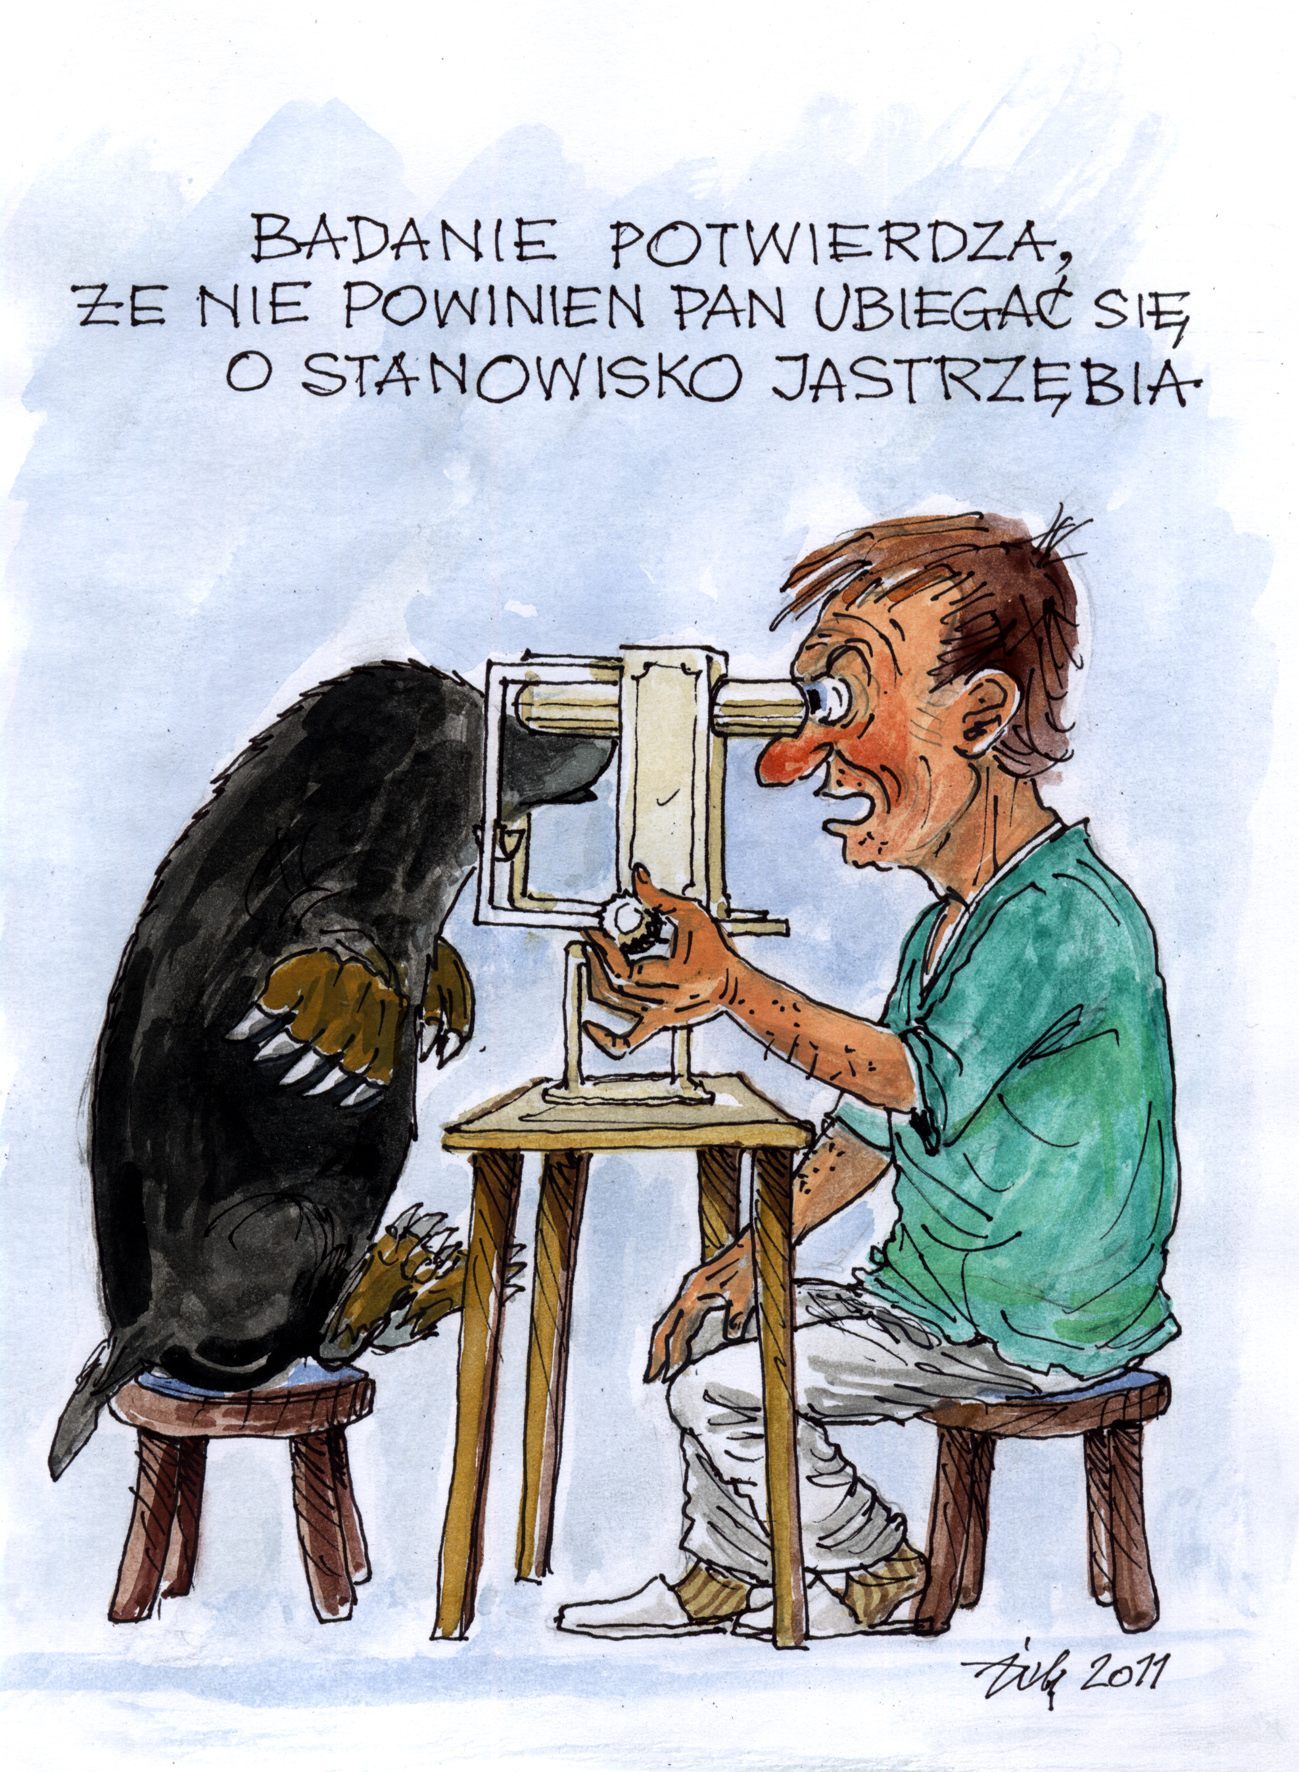 BADANIE POTWIERDZA,
ŻE NIE POWINIEN PAN UBIEGAĆ SIĘ
O STANOWISKO JASTRZĘBIA.
2011